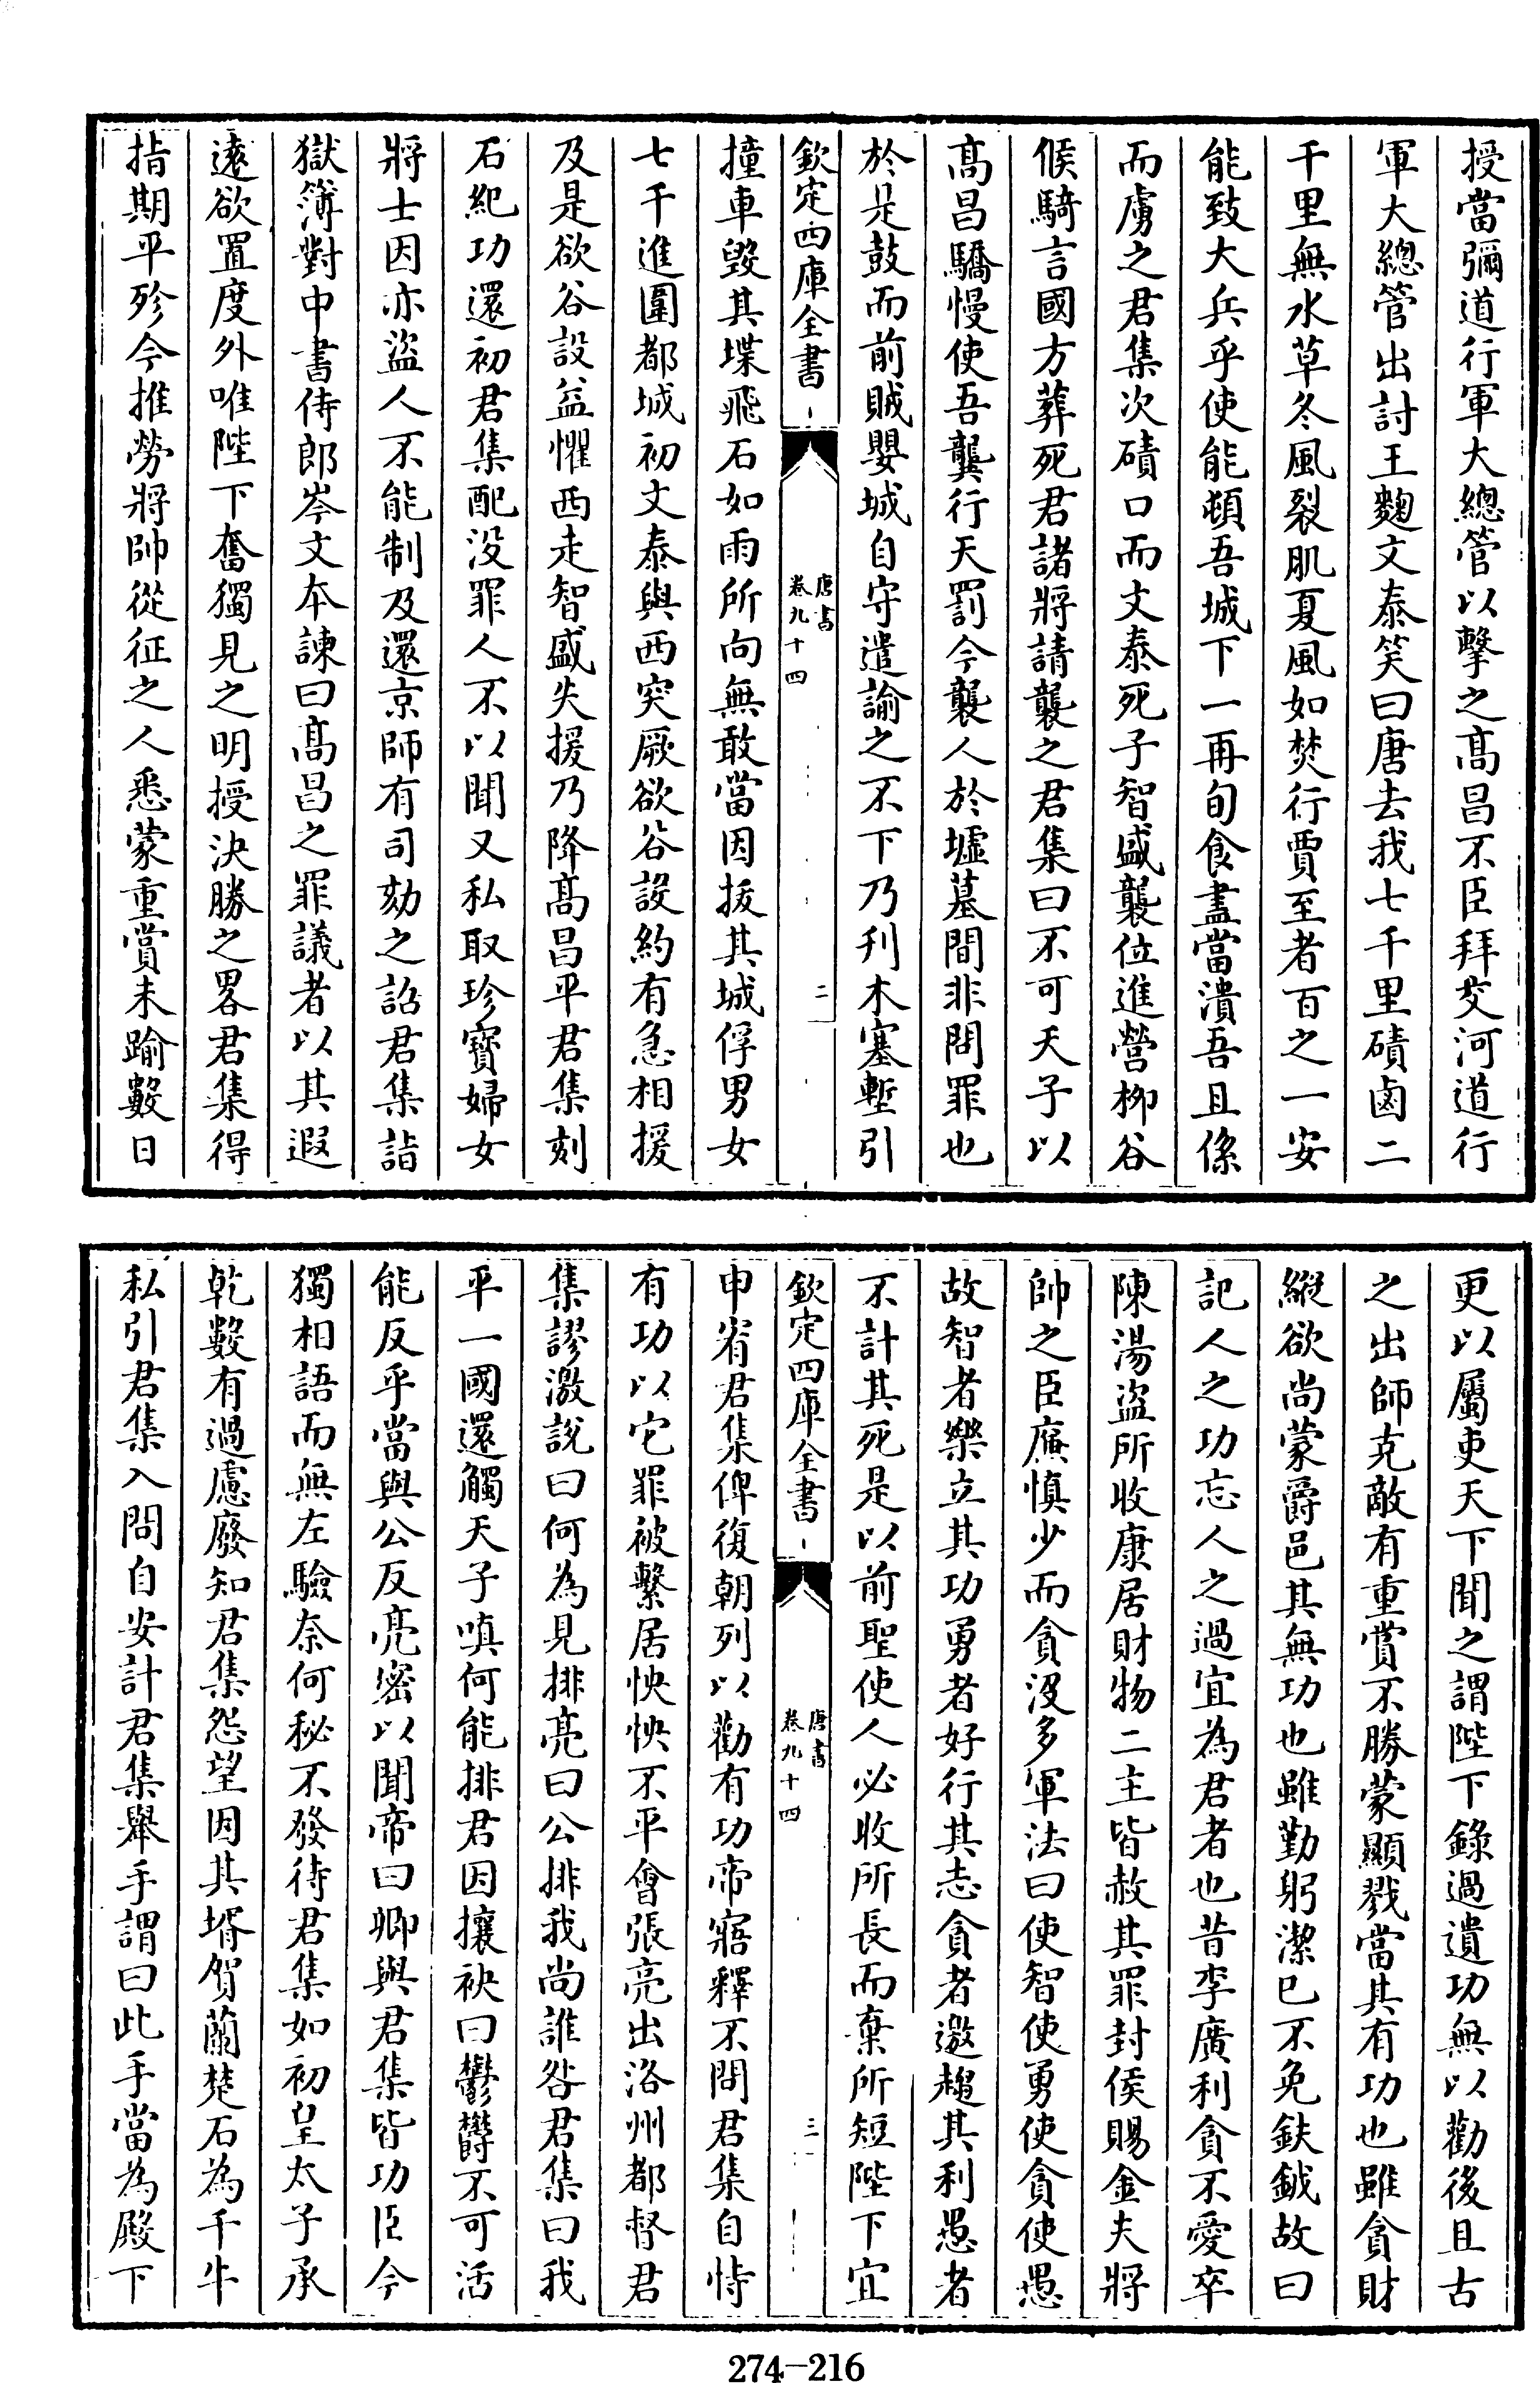 授當彌道行軍大總管以擊之髙昌不臣拜交河道行
軍大總管出討王麴文泰笑曰唐去我七千里磧鹵二
千里無水草冬風裂肌夏風如焚行賈至者百之一安
能致大兵乎使能頓吾城下一再旬食盡當潰吾且係
而虜之君集次磧口而文泰死子智盛襲位進營柳谷
候騎言國方葬死君諸將請襲之君集曰不可天子以
髙昌驕慢使吾龔行天罰今襲人於墟墓間非問罪也
於是鼓而前賊嬰城自守遣諭之不下乃刋木塞塹引
欽定四庫全書
唐書
卷九十四
二
撞車毀其堞飛石如雨所向無敢當因拔其城俘男女
七千進圍都城初文泰與西突厥欲谷設約有急相援
及是欲谷設益懼西走智盛失援乃降髙昌平君集刻
石紀功還初君集配没罪人不以聞又私取珍寶婦女
將士因亦盜人不能制及還京師有司劾之詔君集詣
獄簿對中書侍郎岑文本諫曰髙昌之罪議者以其遐
遠欲置度外唯陛下奮獨見之明授決勝之畧君集得
指期平殄今推勞將帥從征之人悉蒙重賞未踰數日
更以屬吏天下聞之謂陛下錄過遺功無以勸後且古
之出師克敵有重賞不勝蒙顯戮當其有功也雖貪財
縱欲尚蒙爵邑其無功也雖勤躬潔已不免鈇鉞故曰
記人之功忘人之過宜為君者也昔李廣利貪不愛卒
陳湯盜所收康居財物二主皆赦其罪封侯賜金夫將
帥之臣廉慎少而貪沒多軍法曰使智使勇使貪使愚
故智者樂立其功勇者好行其志貪者邀趨其利愚者
不計其死是以前聖使人必收所長而棄所短陛下宜
欽定四庫全書
唐書
卷九十四
三
申宥君集俾復朝列以勸有功帝寤釋不問君集自恃
有功以它罪被繫居怏怏不平會張亮出洛州都督君
集謬激說曰何為見排亮曰公排我尚誰咎君集曰我
平一國還觸天子嗔何能排君因攘袂曰鬱鬱不可活
能反乎當與公反亮密以聞帝曰卿與君集皆功臣今
獨相語而無左驗奈何秘不發待君集如初皇太子承
乾數有過慮廢知君集怨望因其壻賀蘭楚石為千牛
私引君集入問自安計君集舉手謂曰此手當為殿下
274-216